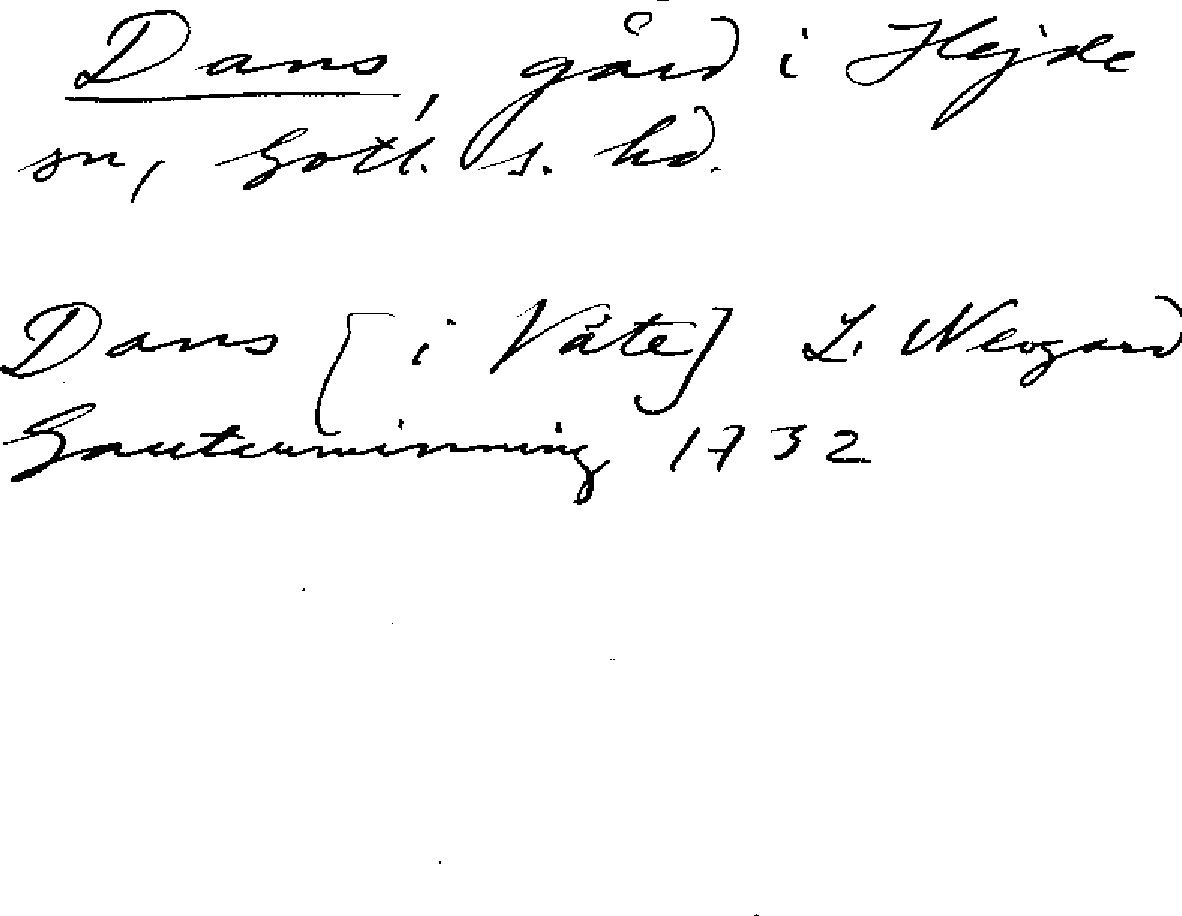 Dans, gård i Hejde
sn, Gotl. s. hd.
Dans [i Väte] L. Neogard
Gauterminning 1732